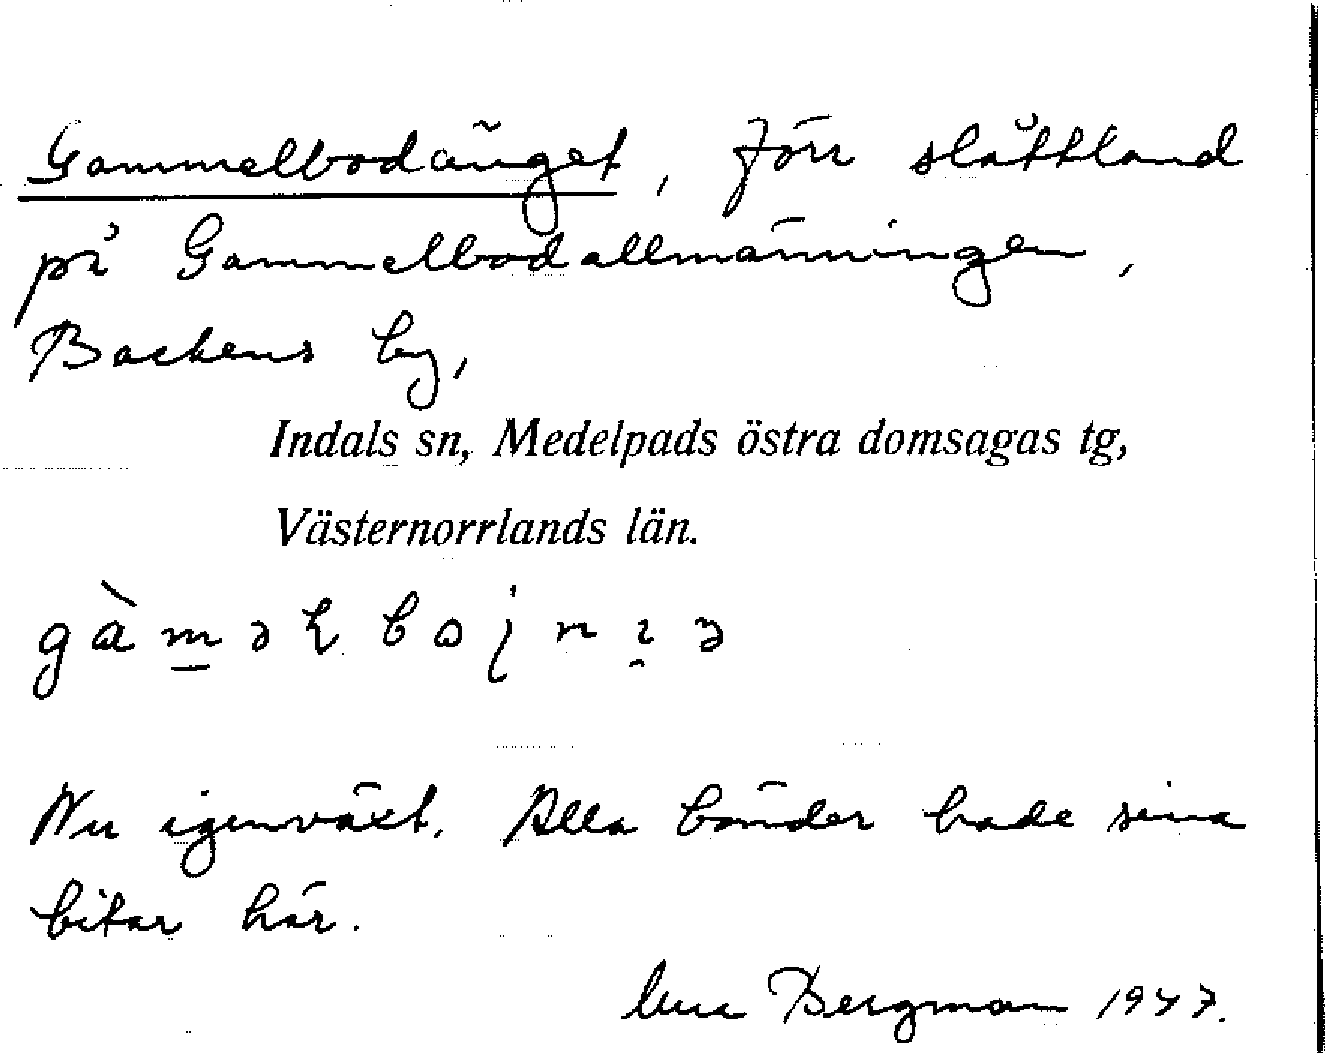 Gammelbodänget, förr slåttland
på Gammelbodallmänningen,
Backens by,
Indals sn, Medelpads östra domsagas tg,
Västernorrlands län.
Nu igenväxt. Alla bönder hade sina
bitar här.
Bergman 1947.